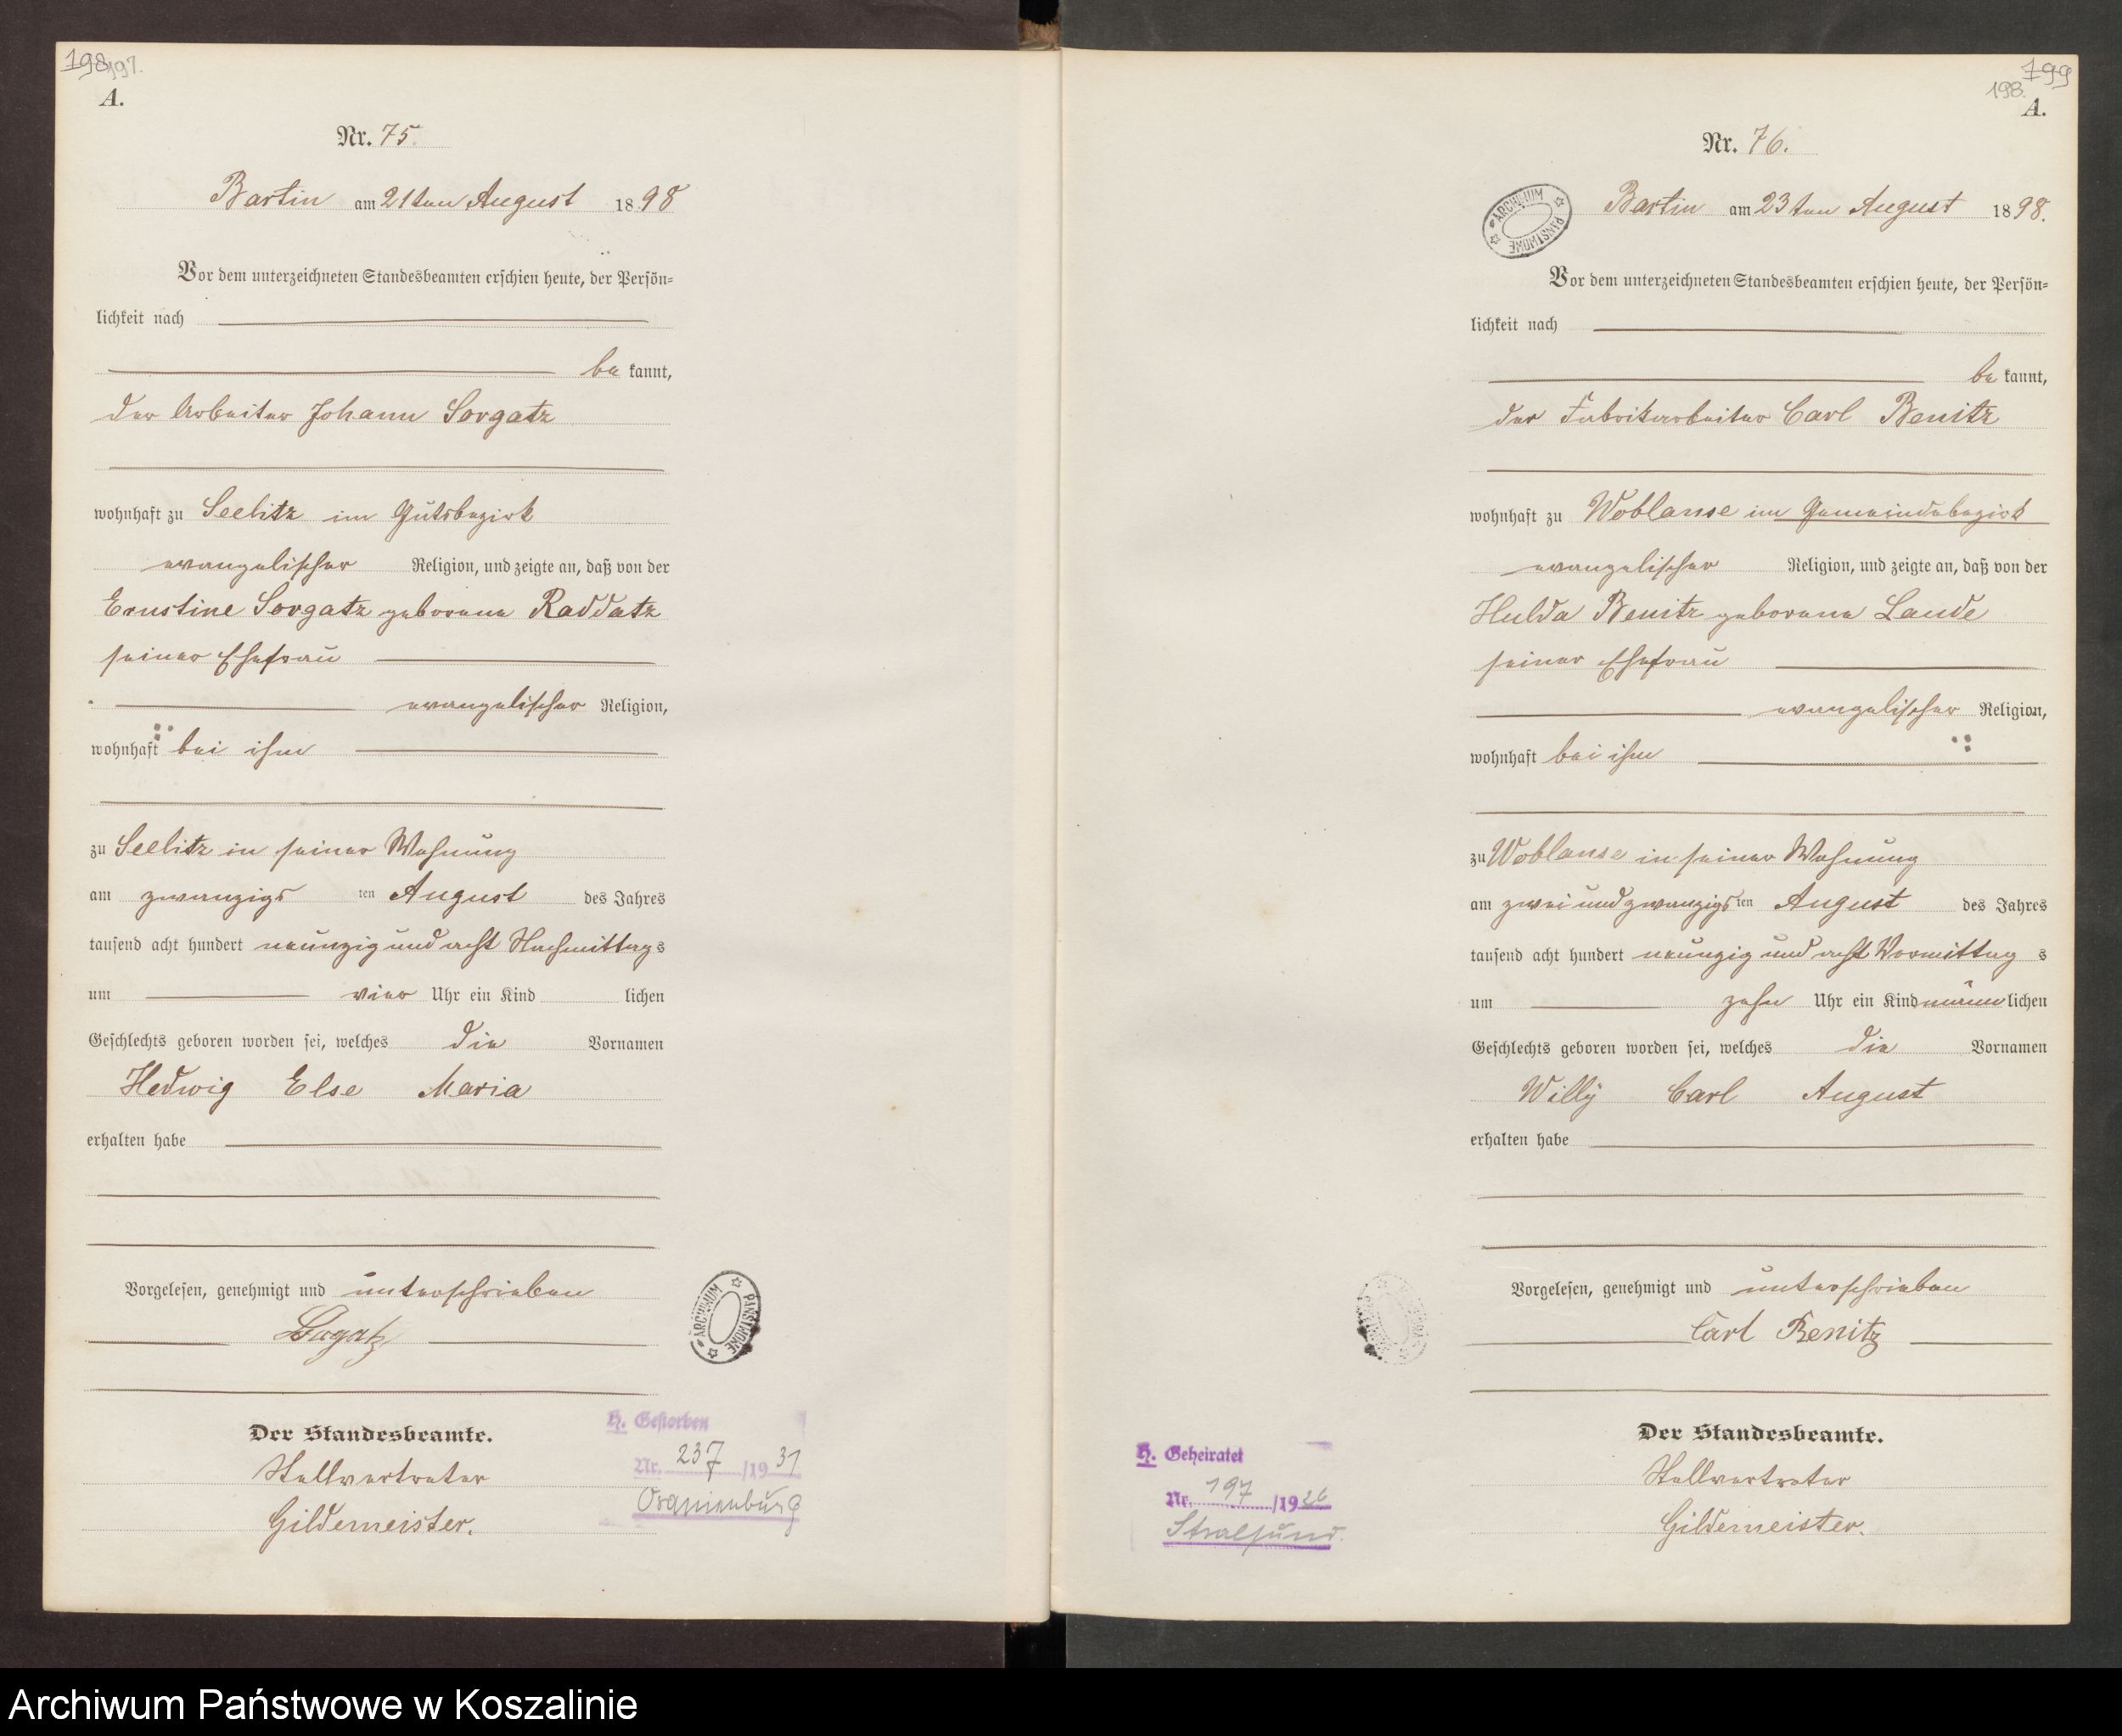 198 197.
A.
Nr. 75.
Bartin am 21ten August 1898
Vor dem unterzeichneten Standesbeamten erschien heute, der Persön=
lichkeit nach
be kannt,
der Arbeiter Johann Sorgatz
wohnhaft zu Seelitz im Gutsbezirk
evangelischer Religion, und zeigte an, daß von der
Ernstine Sorgatz geborene Raddatz
seiner Ehefrau
evangelischer Religion,
wohnhaft bei ihm
zu Seelitz in seiner Wohnung
am zwanzigs ten August des Jahres
tausend acht hundert neunzig und acht Nachmittags
um vier Uhr ein Kind lichen
Geschlechts geboren worden sei, welches die Vornamen
Hedwig Else Maria
erhalten habe
Vorgelesen, genehmigt und unterschrieben
Der Standesbeamte.
Stellvertreter
Gildemeister.
H. Gestorben
Nr. 237 /1931
Oranienburg
ARCHIWUM PAŃSTWOWE
199
198.
A.
Nr. 76.
ARCHIWUM PAŃSTWOWE
Bartin am 23ten August 1898.
Vor dem unterzeichneten Standesbeamten erschien heute, der Persön=
lichkeit nach
be kannt,
der Fabrikarbeiter Carl Benitz
wohnhaft zu Woblanse im Gemeindebezirk
evangelischer Religion, und zeigte an, daß von der
Hulda Benitz geborene Laude
seiner Ehefrau
evangelischer Religion,
wohnhaft bei ihm
zu Woblanse in seiner Wohnung
am zwei und zwanzigs ten August des Jahres
tausend acht hundert neunzig und acht Vormittag s
um zehn Uhr ein Kind männ lichen
Geschlechts geboren worden sei, welches die Vornamen
Willy Carl August
erhalten habe
Vorgelesen, genehmigt und unterschrieben
Carl Benitz
Der Standesbeamte.
Stellvertreter
Gildemeister.
H. Geheiratet
Nr. 197 /1926
Stralsund.
Archiwum Państwowe w Koszalinie